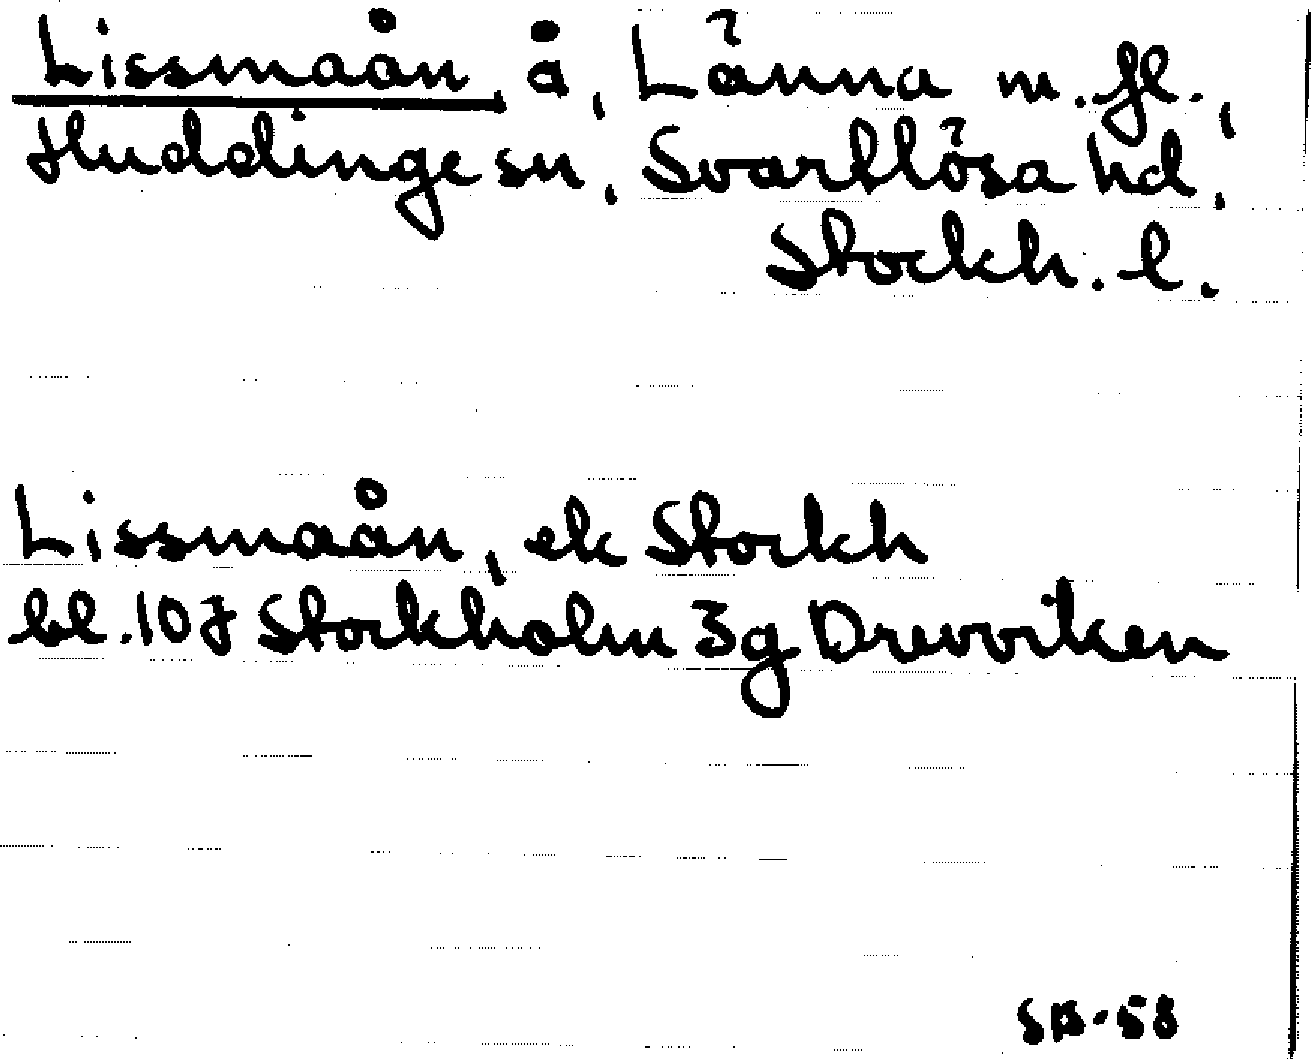 Lissmaån, å, Länna m. fl.,
Huddinge sn, Svartlösa hd,
Stockh. l.
Lissmaån, ek Stockh
bl. 10J Stockholm 3g Drevviken
SB-58